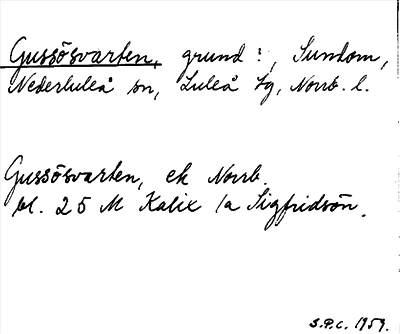 Gussösvarten, grund :, Sundom,
Nederluleå sn, Luleå tg, Norrb. l.
Gussösvarten, ek Norrb.
bl. 25 M Kalix /a Sigfridsön.
S.P.C. 1959.